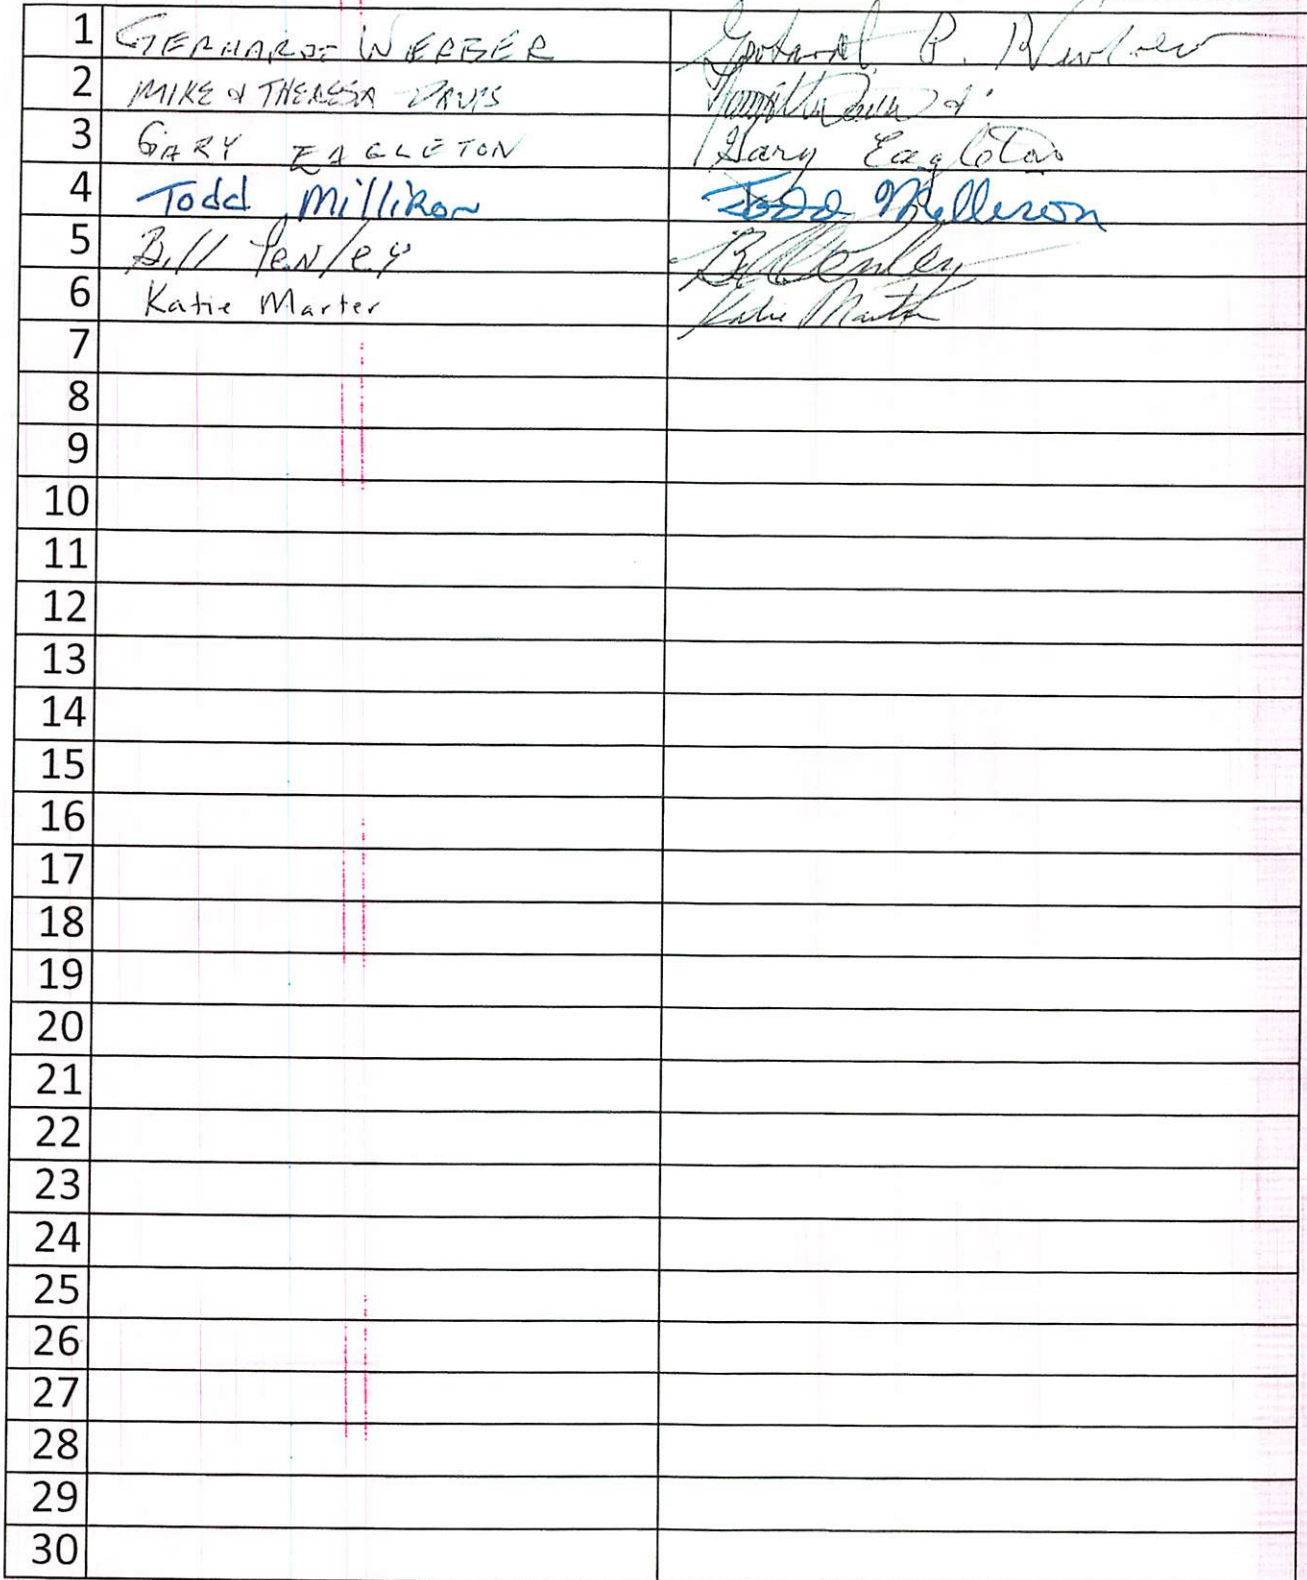 1 GERHARDT WERBER
2 MIKE & THERESA DAVIS
3 GARY EAGLETON Gary Eagleton
4 Todd Millikon Todd
5 Bill Penley Bill Penley
6 Katie Marter Katie Marter
7
8
9
10
11
12
13
14
15
16
17
18
19
20
21
22
23
24
25
26
27
28
29
30